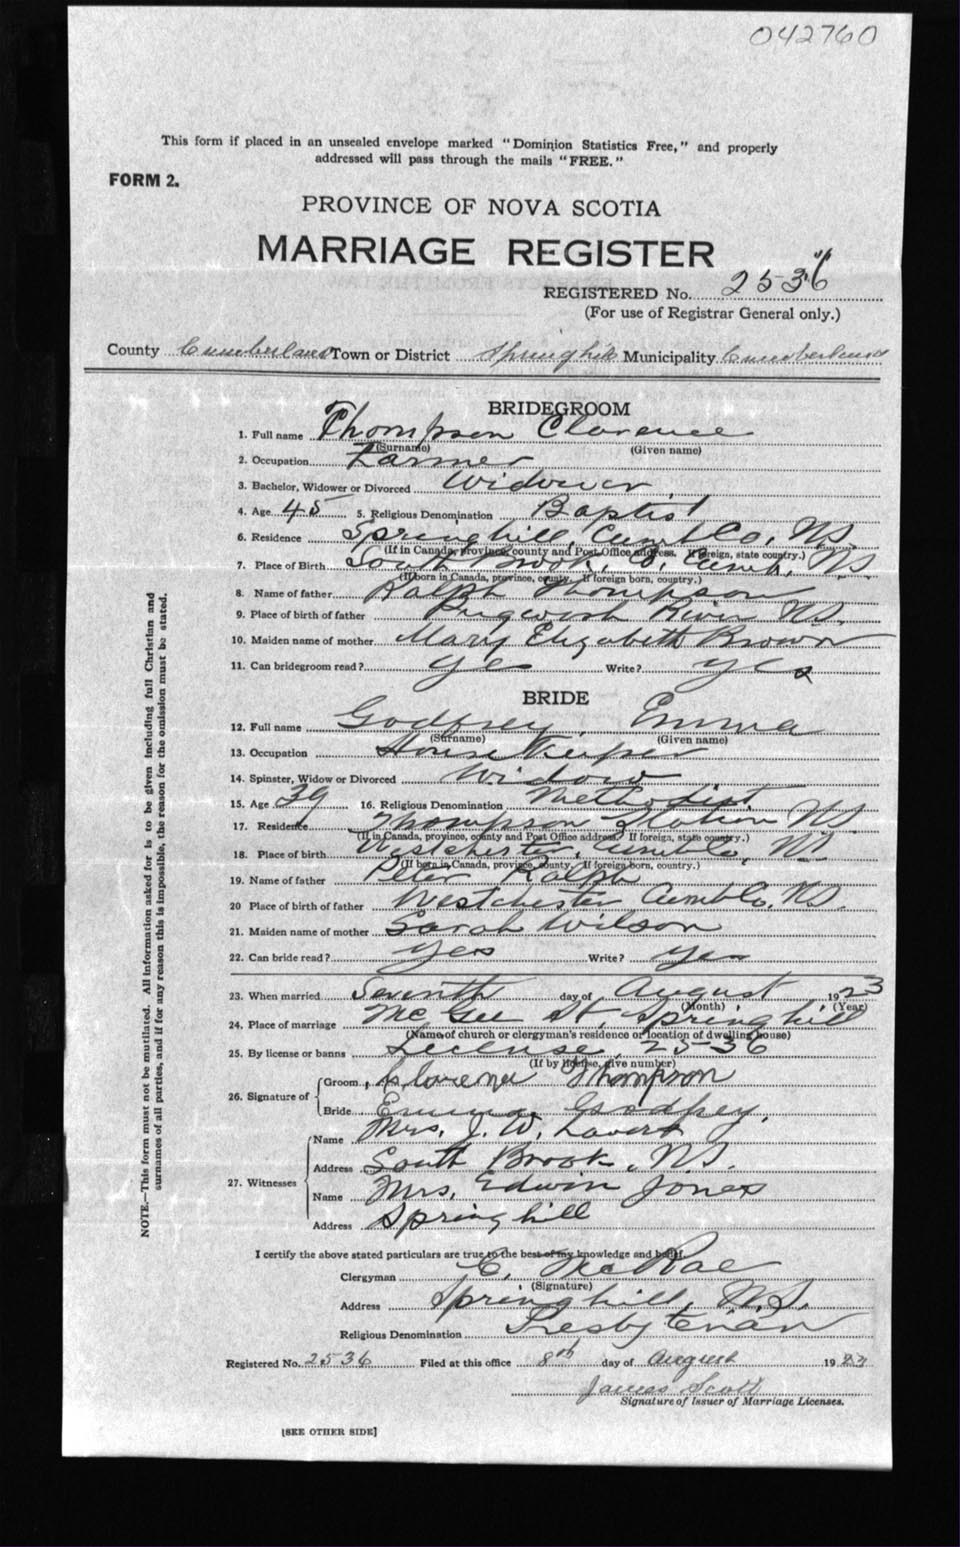 042760
This form if placed in an unsealed envelope marked "Dominion Statistics Free," and properly
addressed will pass through the mails "FREE."
FORM 2.
PROVINCE OF NOVA SCOTIA
MARRIAGE REGISTER
REGISTERED No. 2536
(For use of Registrar General only.)
County Cumberland Town or District Springhill Municipality Cumberland
BRIDEGROOM
1. Full name Thompson Clarence
(Surname) (Given name)
2. Occupation Farmer
3. Bachelor, Widower or Divorced Widower
4. Age 45 5. Religious Denomination Baptist
6. Residence Springhill, Cumb Co, N.S.
(If in Canada, province, county and Post Office address. If foreign, state country.)
7. Place of Birth South Brook, Co, Cumb, N.S.
(If born in Canada, province, county. If foreign born, country.)
8. Name of father Ralph Thompson
9. Place of birth of father Pugwash River N.S.
10. Maiden name of mother Mary Elizabeth Brown
11. Can bridegroom read? yes Write? yes
BRIDE
12. Full name Godfrey, Emma
(Surname) (Given name)
13. Occupation House Keeper
14. Spinster, Widow or Divorced Widow
15. Age 39 16. Religious Denomination Methodist
17. Residence Thompson Station N.S.
(If in Canada, province, county and Post Office address. If foreign, state country.)
18. Place of birth Westchester, Cumb Co, N.S.
(If born in Canada, province, county. If foreign born, country.)
19. Name of father Peter Ralph
20 Place of birth of father Westchester Cumb Co, N.S.
21. Maiden name of mother Sarah Wilson
22. Can bride read? yes Write? yes
23. When married Seventh day of August 1923
(Month) (Year)
24. Place of marriage McGee St, Springhill
(Name of church or clergyman's residence or location of dwelling house)
25. By license or banns License 2536
(If by license, give number)
26. Signature of Groom Clarence Thompson
Bride Emma Godfrey.
27. Witnesses Name Mrs. J. W.
Address South Brook, N.S.
Name Mrs. Edwin Jones
Address Springhill
I certify the above stated particulars are true to the best of my knowledge and belief.
Clergyman C. McRae
(Signature)
Address Springhill, N.S.
Religious Denomination Presbyterian
Registered No. 2536 Filed at this office 8th day of August 1923
James Scott
Signature of Issuer of Marriage Licenses.
[SEE OTHER SIDE]
NOTE.—This form must not be mutilated. All information asked for is to be given including full Christian and
surnames of all parties, and if for any reason this is impossible, the reason for the omission must be stated.